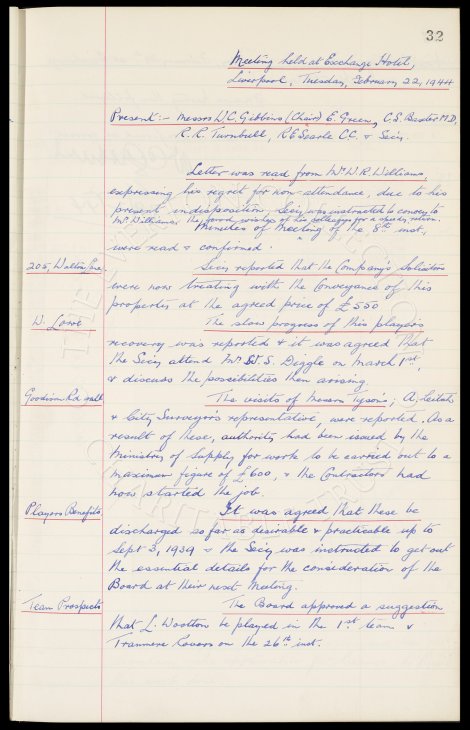 32
Meeting held at Exchange Hotel,
Liverpool, Tuesday, February 22, 1944
Present:- Messrs W.C. Gibbins (Chair) E. Green, C.S. Baxter M.D,
R.R. Turnbull, R E Searle C.C. & Secy.
Letter was read from Mr W.R. Williams,
expressing his regret for non-attendance, due to his
present indisposition, Secy. was instructed to convey to
Mr Williams the good wishes of his colleagues for a speedy return.
Minutes of Meeting of the 8th inst,
were read & confirmed.
205, Walton Lane.
Secy reported that the Company's Solicitors
were now treating with the Conveyance of this
property at the agreed price of £550
W. Lowe
The slow progress of this players
recovery was reported & it was agreed that
the Secy attend Mr W.S. Diggle on March 1st,
& discuss the possibilities then arising.
Goodison Rd wall
The visits of Messrs Tyson's; A. Leitch
& City Surveyor's representative, were reported. As a
result of these, authority had been issued by the
Ministry of Supply for work to be carried out to a
maximum figure of £600, & the Contractors had
now started the job.
Players Benefits
It was agreed that these be
discharged so far as desirable & practicable up to
Sept 3, 1939 & the Secy was instructed to get out
the essential details for the consideration of the
Board at their next Meeting.
Team Prospects
The Board approved a suggestion
that L. Wootton be played in the 1st team v
Tranmere Rovers on the 26th inst.